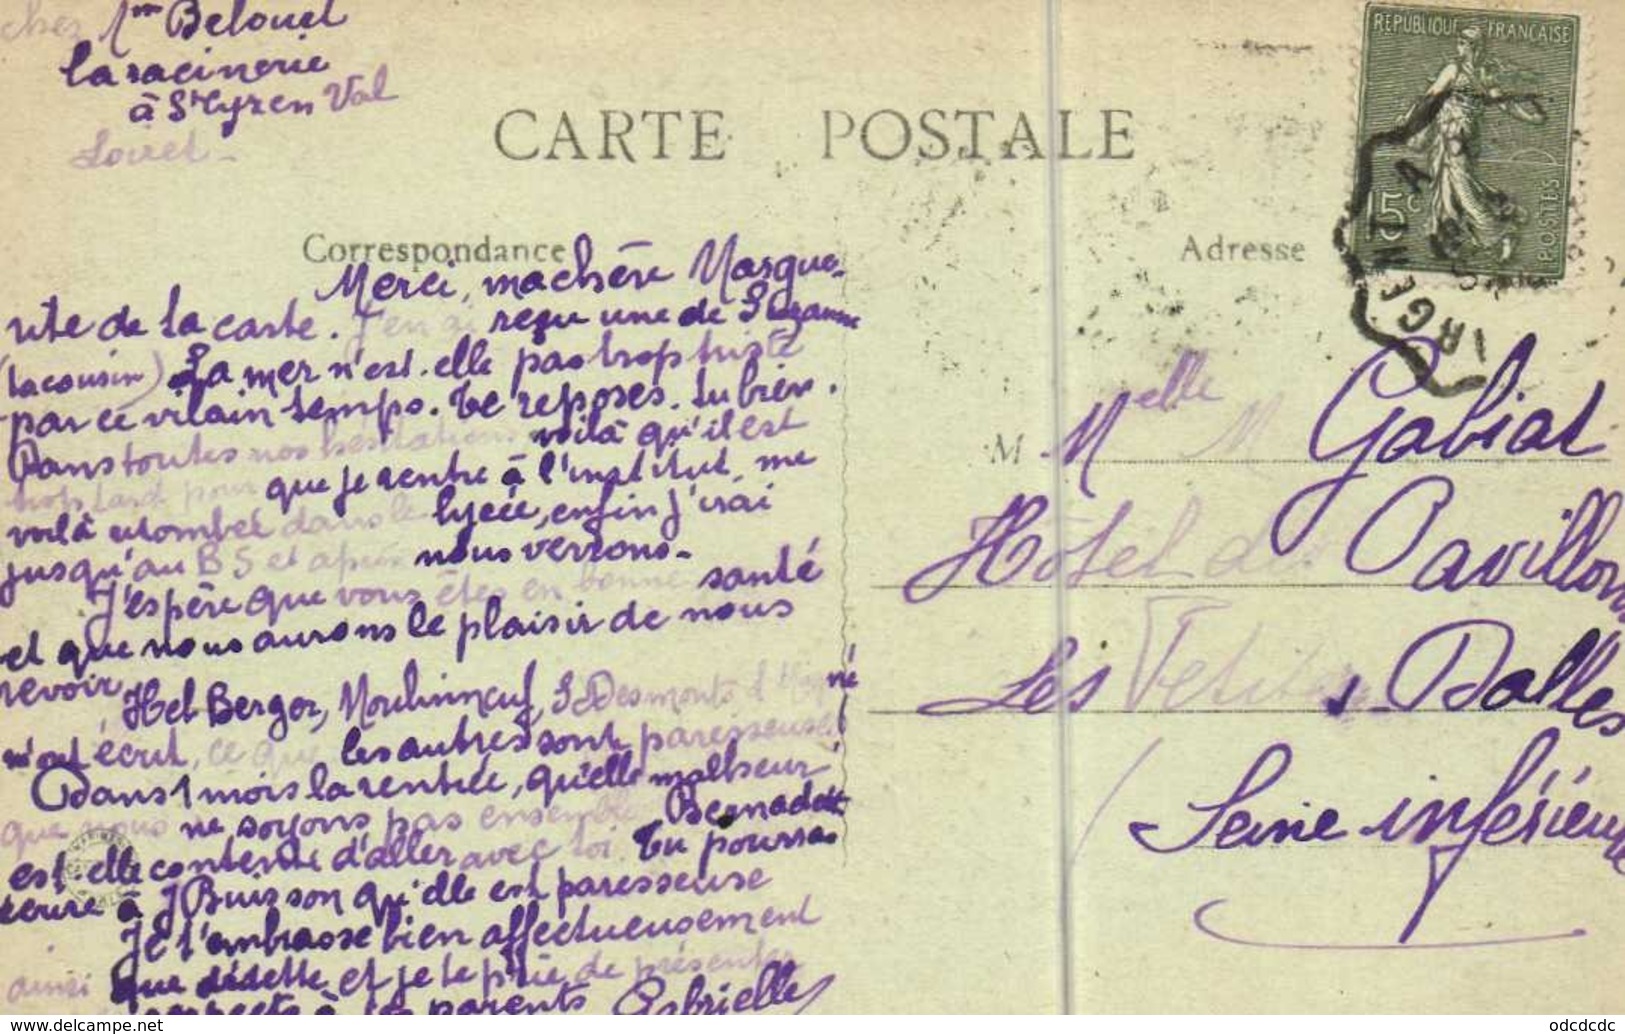 chez Mme Belouet
la racinerie
à St Cyr en Val
Loiret -
CARTE POSTALE
Correspondance
Adresse
REPUBLIQUE FRANÇAISE
15c
POSTES
ARGENT A
Merci, ma chère Margue-
rite de la carte. J'en ai reçu une de Suzanne
(la cousin) La mer n'est-elle pas trop triste
par ce vilain temps. Te reposes-tu bien.
Dans toutes nos hésitations voilà qu'il est
trop tard pour que je rentre à l'institut, me
voilà retombée dans le lycée, enfin j'irai
jusqu'au BS et après nous verrons -
J'espère que vous êtes en bonne santé
et que nous aurons le plaisir de nous
revoir.
Hel Berger, Moulinneuf, S Desmonts
m'ont écrit, ce que les autres sont paresseuses!
Dans 1 mois la rentrée, qu'elle malheur
que nous ne soyons pas ensemble Bernadette
est elle contente d'aller avec toi. Tu pourras
écrire à J Buisson qu'elle est paresseuse
Je t'embrasse bien affectueusement
ainsi que dédette et je te prie de présenter
respects à tes parents Gabrielle
M Melle M Gabiat
Hôtel des Pavillons
Les Petites Dalles
Seine inférieure
odcdcdc